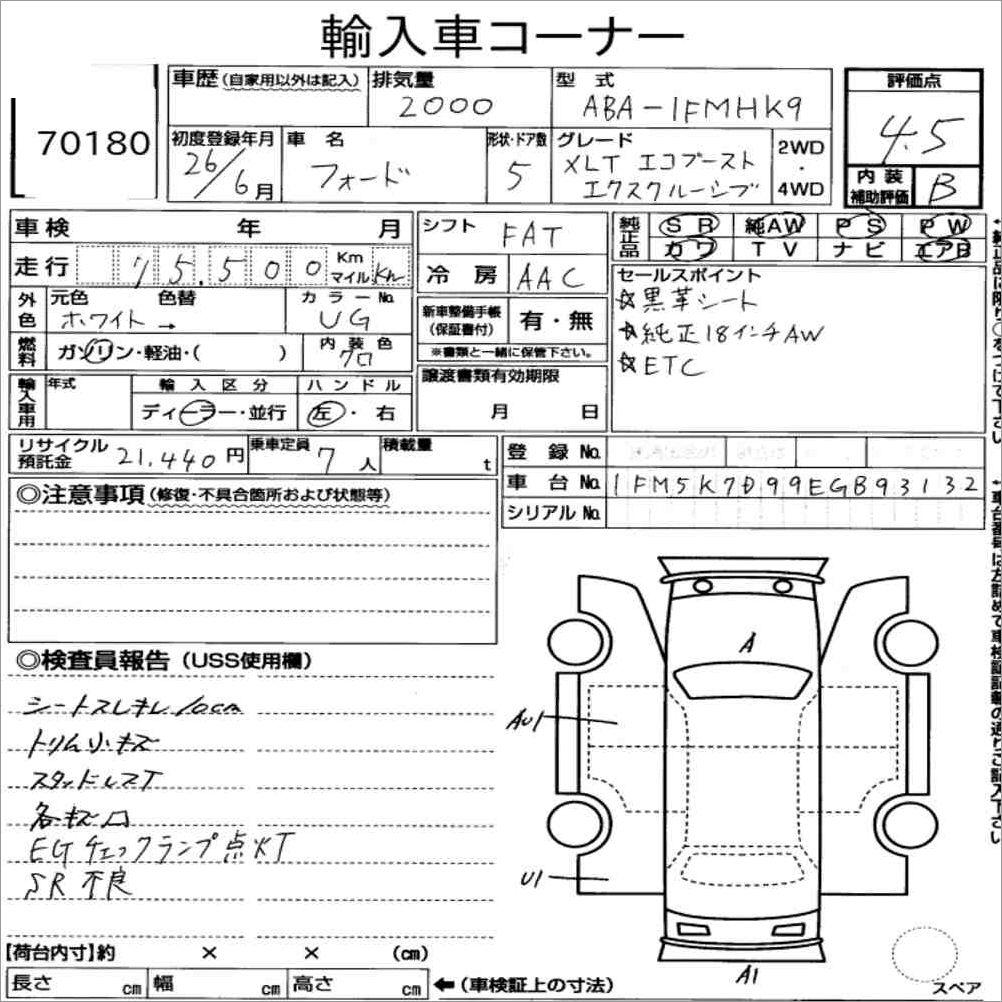 輸入車コーナー
70180
車歴(自家用以外は記入)
排気量
2000
型式
ABA-1FMHK9
評価点
4.5
初度登録年月
26/6月
車名
フォード
形状・ドア数
5
グレード
XLT エコブースト
エクスクルーシブ
2WD
・
4WD
内装
補助評価
B
車検 年 月
走行 75.500 Km マイル Km
シフト FAT
冷房 AAC
純正品
SR 純AW PS PW
カワ TV ナビ エアB
セールスポイント
☆黒革シート
☆純正18インチAW
☆ETC
外色
元色 色替
ホワイト→
カラーNo.
UG
燃料
ガソリン・軽油・( )
内装色
クロ
新車整備手帳
(保証書付)
有・無
※書類と一緒に保管下さい。
譲渡書類有効期限
月 日
輸入車用
年式
輸入区分
ディーラー・並行
ハンドル
左・右
リサイクル
預託金
21.440円
乗車定員
7人
積載量
t
登録No.
車台No. 1FM5K7D99EGB93132
シリアルNo.
◎注意事項(修復・不具合箇所および状態等)
◎検査員報告(USS使用欄)
シートスレキレ10cm
トリム小キズ
スタッドレスT
各キズ凹
EGチェックランプ点灯
SR不良
A
AU1
U1
A1
スペア
【荷台内寸】約 × × (cm)
長さ cm 幅 cm 高さ cm ←(車検証上の寸法)